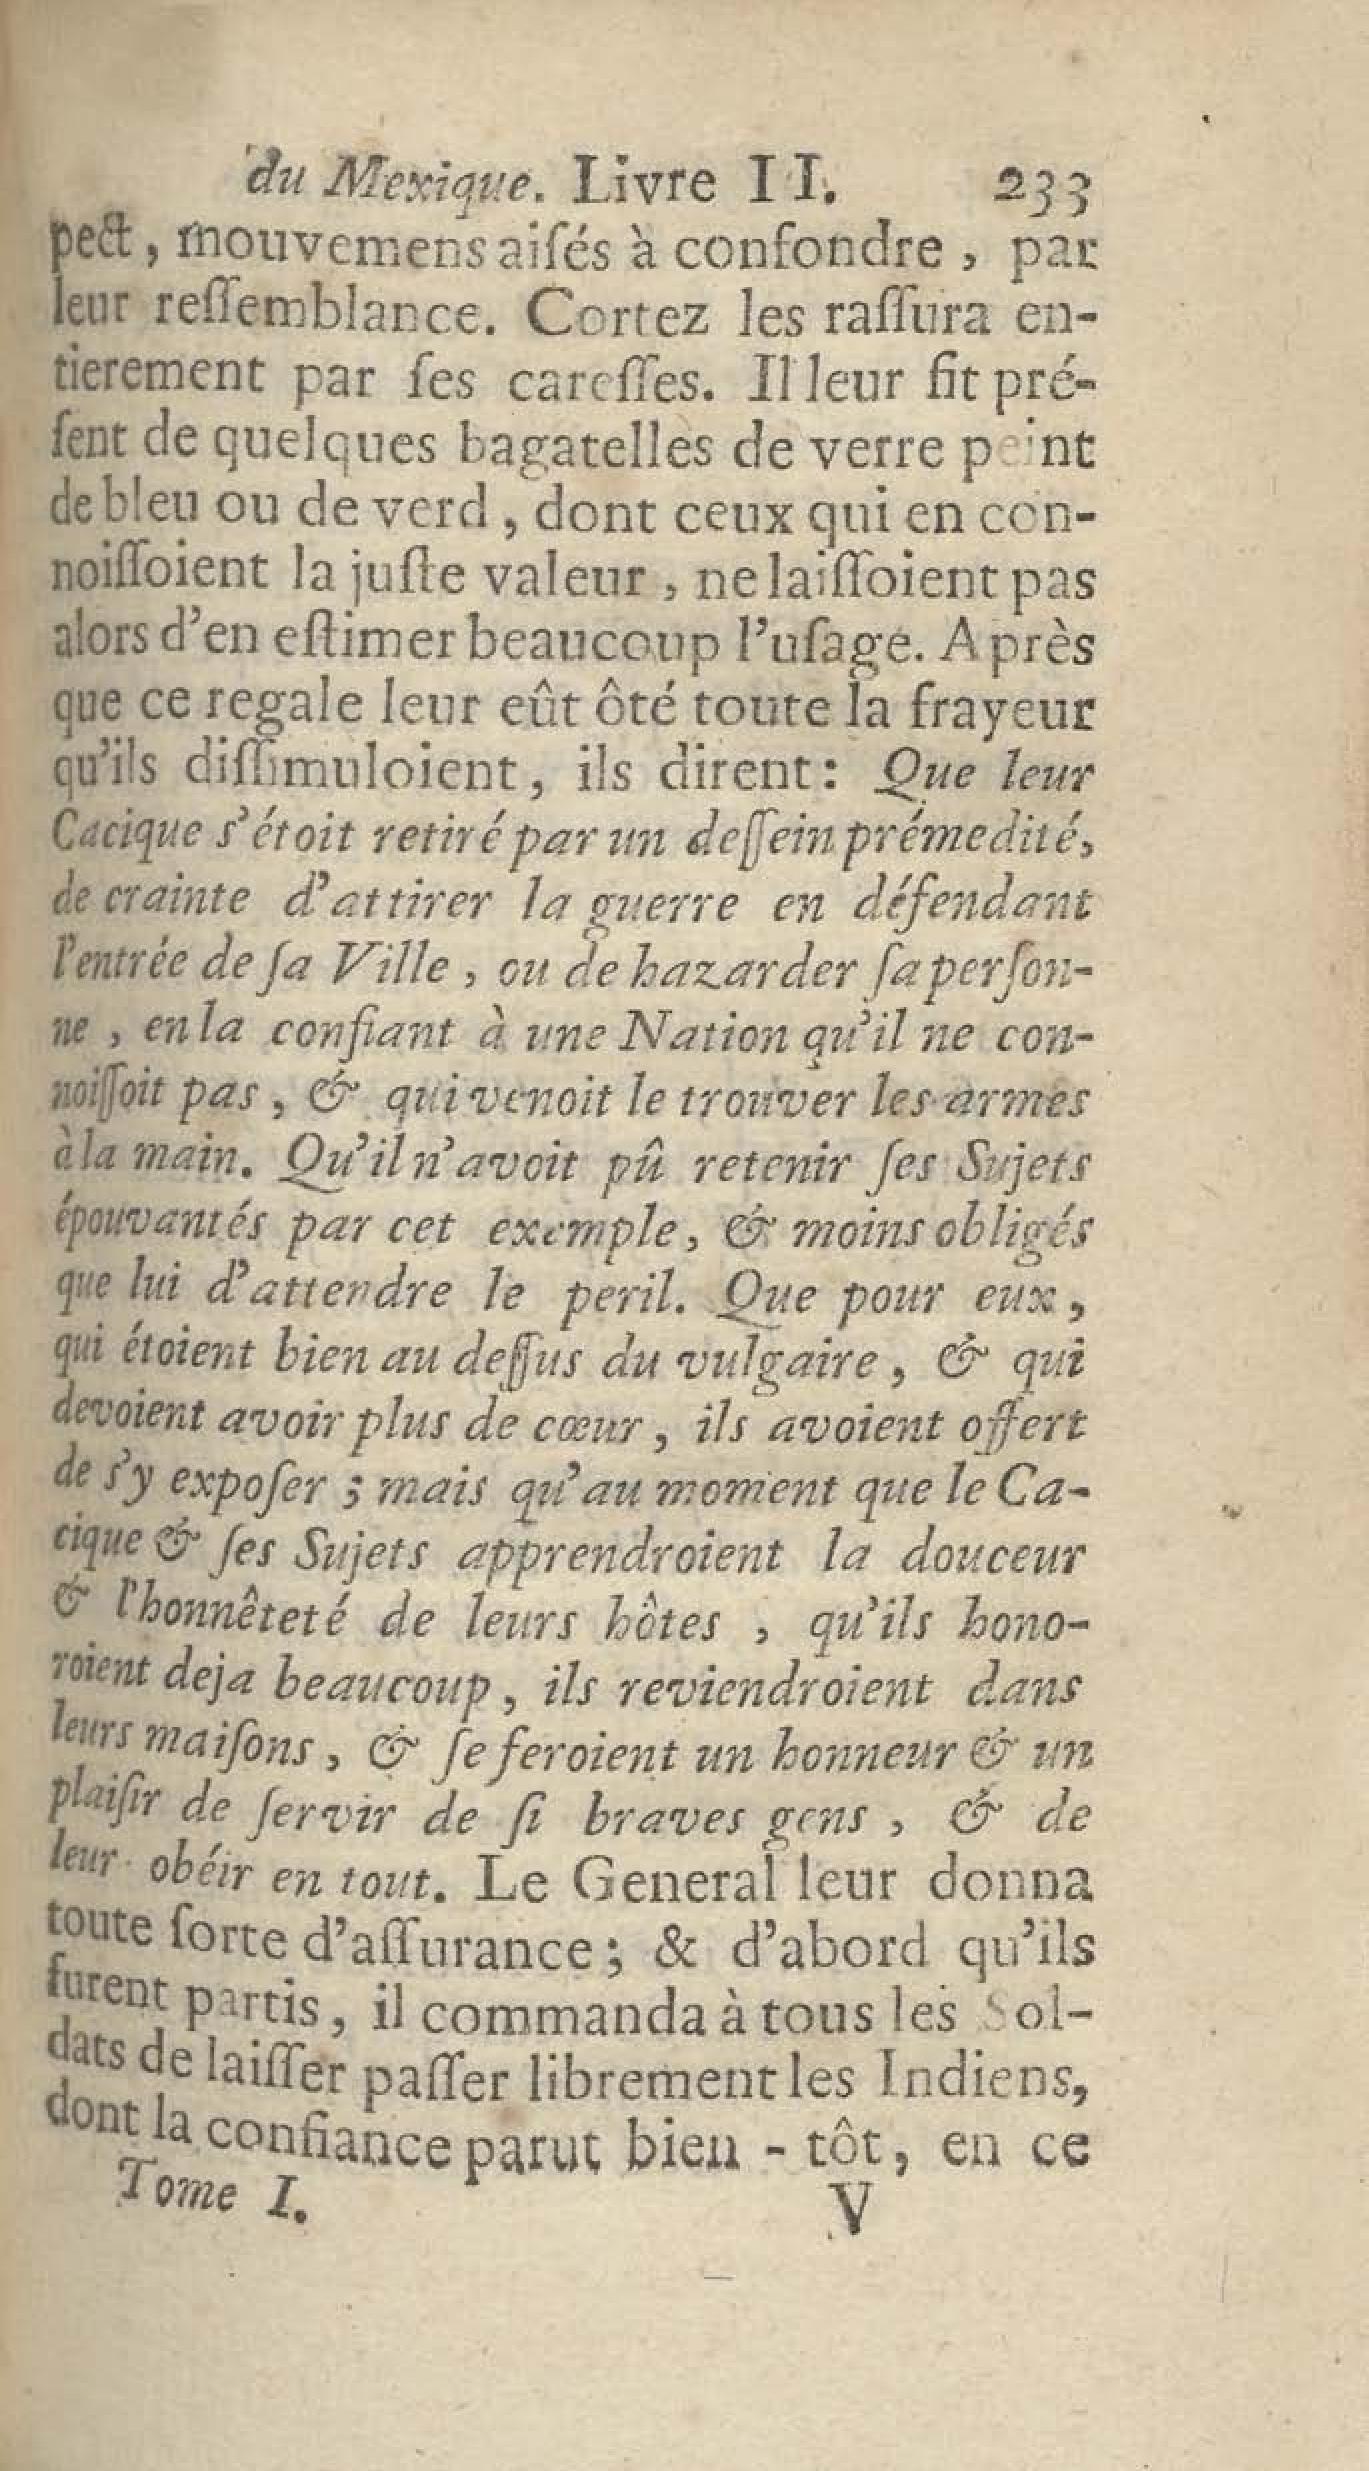 du Mexique. Livre II. 233
pect, mouvemens aiſés à confondre, par
leur reſſemblance. Cortez les raſſura en-
tierement par ſes careſſes. Il leur fit pré-
ſent de quelques bagatelles de verre peint
de bleu ou de verd, dont ceux qui en con-
noiſſoient la juſte valeur, ne laiſſoient pas
alors d'en eſtimer beaucoup l'uſage. Après
que ce regale leur eût ôté toute la frayeur
qu'ils diſſimuloient, ils dirent: Que leur
Cacique s'étoit retiré par un deſſein prémedité,
de crainte d'attirer la guerre en défendant
l'entrée de ſa Ville, ou de hazarder ſa perſon-
ne, en la confiant à une Nation qu'il ne con-
noiſſoit pas, & qui venoit le trouver les armes
à la main. Qu'il n'avoit pû retenir ſes Sujets
épouvantés par cet exemple, & moins obligés
que lui d'attendre le peril. Que pour eux,
qui étoient bien au deſſus du vulgaire, & qui
devoient avoir plus de cœur, ils avoient offert
de s'y expoſer; mais qu'au moment que le Ca-
cique & ſes Sujets apprendroient la douceur
& l'honnêteté de leurs hôtes, qu'ils hono-
roient deja beaucoup, ils reviendroient dans
leurs maiſons, & ſe feroient un honneur & un
plaiſir de ſervir de ſi braves gens, & de
leur obéir en tout. Le General leur donna
toute ſorte d'aſſurance; & d'abord qu'ils
furent partis, il commanda à tous les Sol-
dats de laiſſer paſſer librement les Indiens,
dont la confiance parut bien-tôt, en ce
Tome I. V